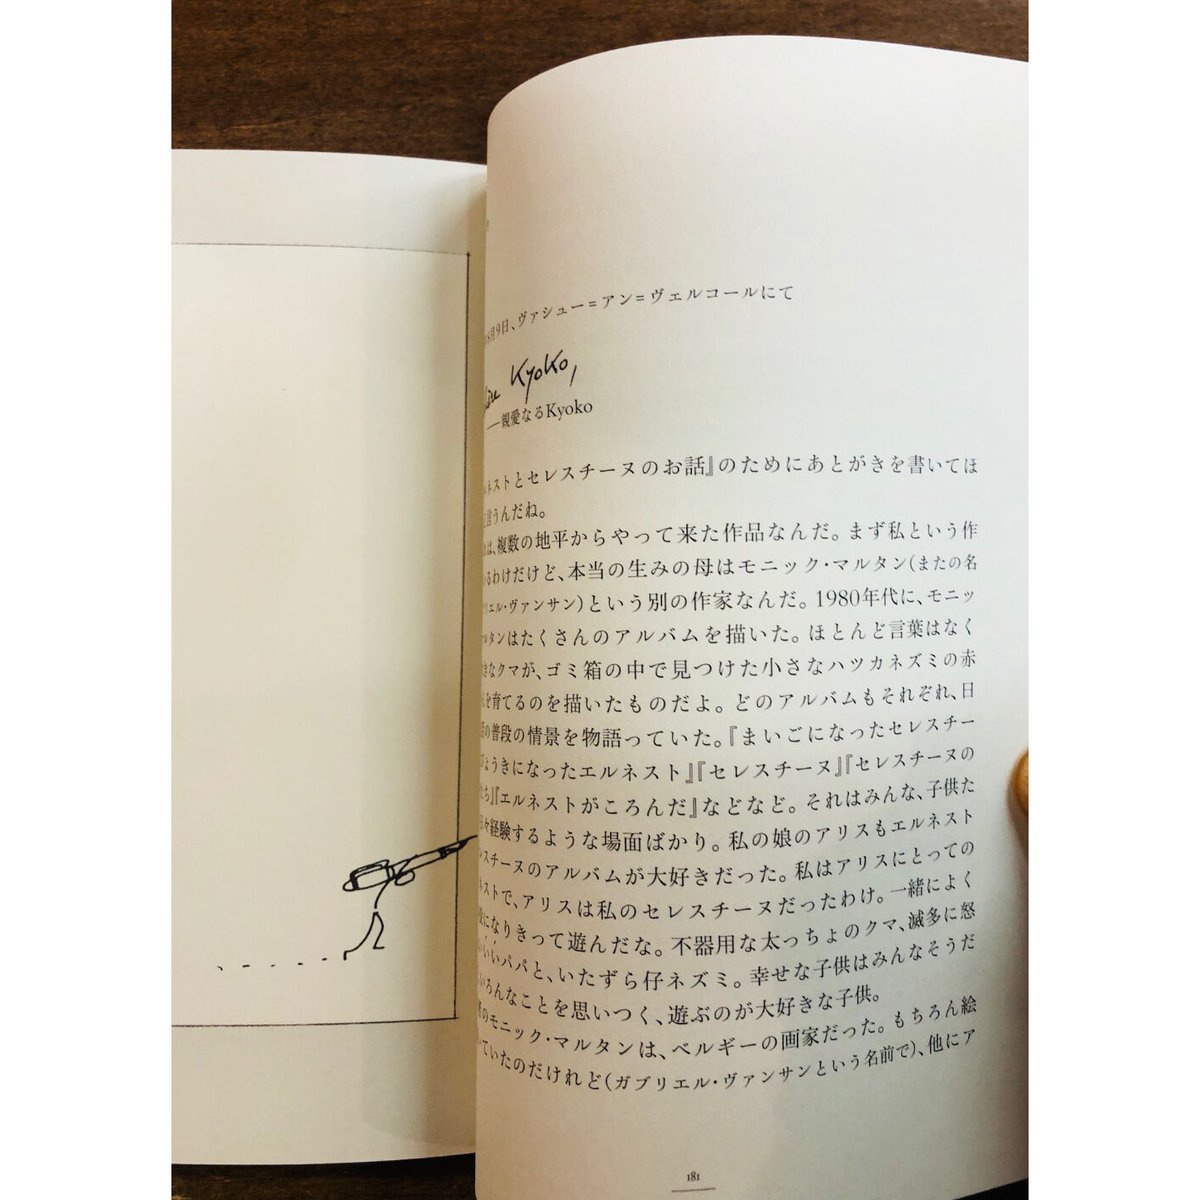 8月9日、ヴァシュー=アン=ヴェルコールにて
Kyoko,
——親愛なるKyoko
ネストとセレスチーヌのお話』のためにあとがきを書いてほ
言うんだね。
は、複数の地平からやって来た作品なんだ。まず私という作
るわけだけど、本当の生みの母はモニック・マルタン（またの名
リエル・ヴァンサン）という別の作家なんだ。1980年代に、モニッ
ルタンはたくさんのアルバムを描いた。ほとんど言葉はなく
きなクマが、ゴミ箱の中で見つけた小さなハツカネズミの赤
を育てるのを描いたものだよ。どのアルバムもそれぞれ、日
の普段の情景を物語っていた。『まいごになったセレスチー
ょうきになったエルネスト』『セレスチーヌ』『セレスチーヌの
ち』『エルネストがころんだ』などなど。それはみんな、子供た
々経験するような場面ばかり。私の娘のアリスもエルネスト
レスチーヌのアルバムが大好きだった。私はアリスにとっての
ネストで、アリスは私のセレスチーヌだったわけ。一緒によく
になりきって遊んだな。不器用な太っちょのクマ、滅多に怒
いいパパと、いたずら仔ネズミ。幸せな子供はみんなそうだ
いろんなことを思いつく、遊ぶのが大好きな子供。
のモニック・マルタンは、ベルギーの画家だった。もちろん絵
ていたのだけれど（ガブリエル・ヴァンサンという名前で）、他にア
181